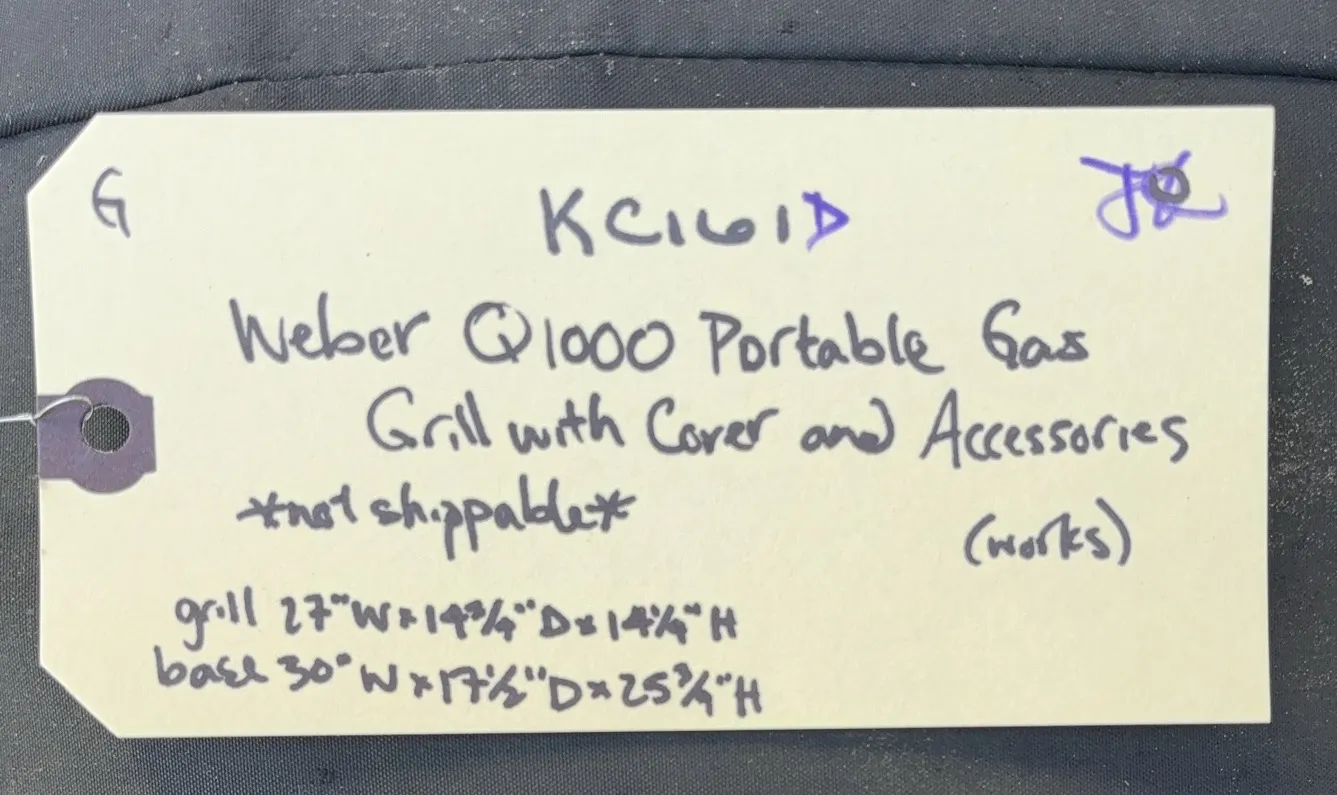 G
KC161D
Weber Q1000 Portable Gas
Grill with Cover and Accessories
*not shippable*
(works)
grill 27"W x 14¾"D x 14¼"H
base 30"W x 17½"D x 25¾"H